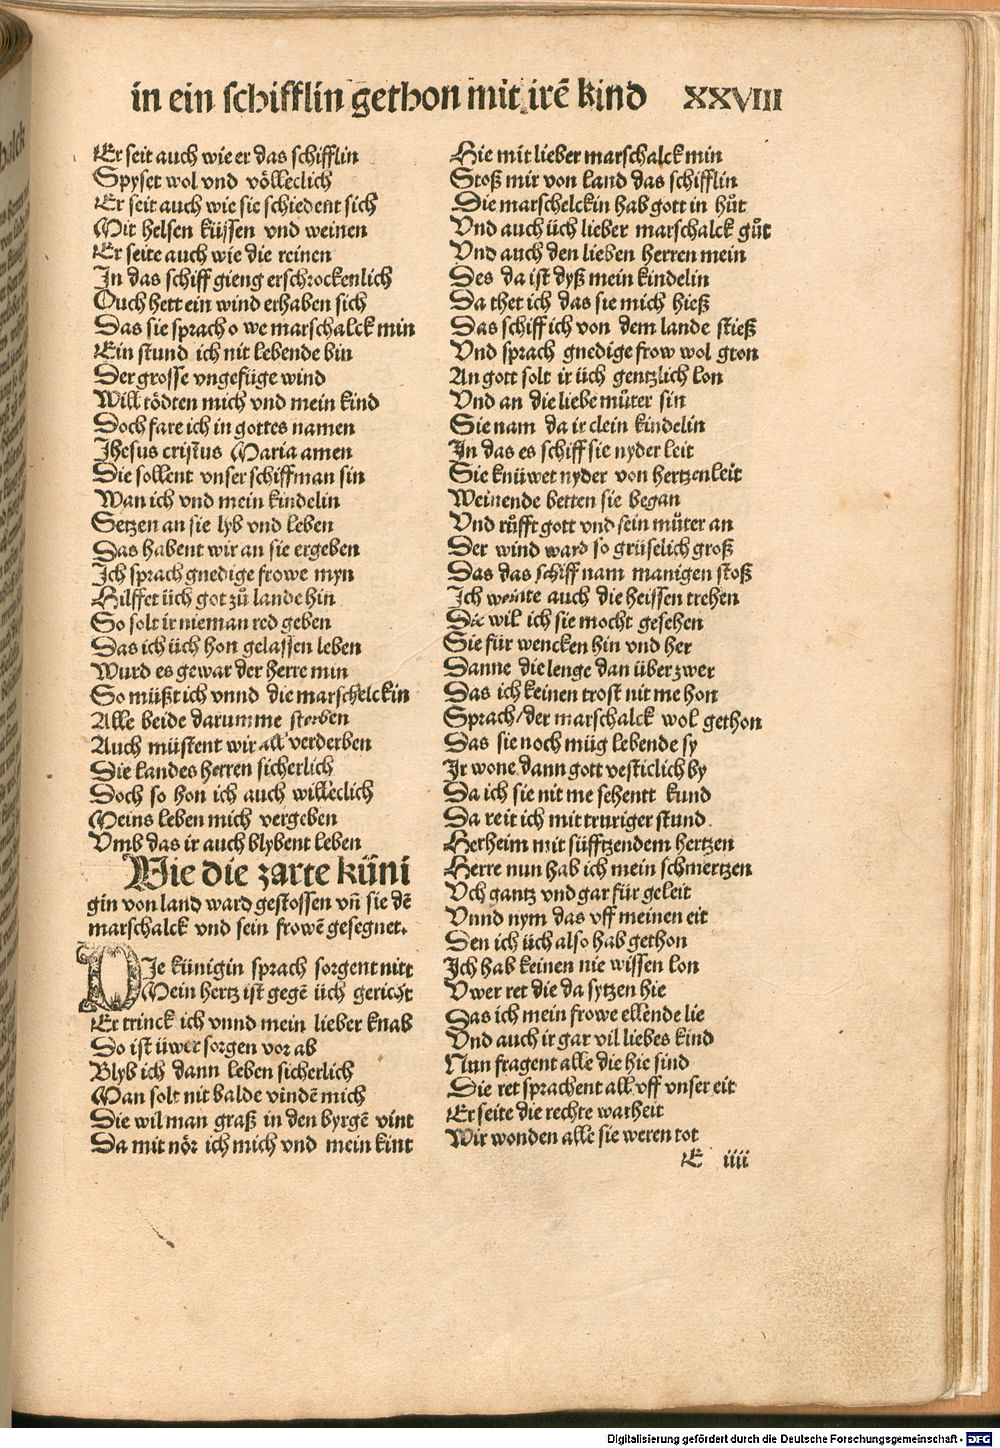 in ein schifflin gethon mit irē kind XXVIII
Er seit auch wie er das schifflin
Spyset wol vnd völleclich
Er seit auch wie sie schiedent sich
Mit helsen küssen vnd weinen
Er seite auch wie die reinen
In das schiff gieng erschrockenlich
Ouch hett ein wind erhaben sich
Das sie sprach o we marschalck min
Ein stund ich nit lebende bin
Der grosse vngefüge wind
Will tödten mich vnd mein kind
Doch fare ich in gottes namen
Jhesus cristus Maria amen
Die sollent vnser schiffman sin
Wan ich vnd mein kindelin
Setzen an sie lyb vnd leben
Das habent wir an sie ergeben
Ich sprach gnedige frowe myn
Hilffet üch got zů lande hin
So solt ir nieman red geben
Das ich üch hon gelassen leben
Wurd es gewar der herre min
So müßt ich vnnd die marschelckin
Alle beide darumme sterben
Auch müstent wir all verderben
Die landes herren sicherlich
Doch so hon ich auch willeclich
Meins leben mich vergeben
Vmb das ir auch blybent leben
Wie die zarte küni
gin von land ward gestossen vn̄ sie dē
marschalck vnd sein frowē gesegnet.
DIe künigin sprach sorgent nitt
Mein hertz ist gegē üch gericht
Er trinck ich vnnd mein lieber knab
So ist üwer sorgen vor ab
Blyb ich dann leben sicherlich
Man solt nit balde vindē mich
Die wil man graß in den byrgē vint
Da mit nör ich mich vnd mein kint
Hie mit lieber marschalck min
Stoß mir von land das schifflin
Die marschelckin hab gott in hůt
Vnd auch üch lieber marschalck gůt
Vnd auch den lieben herren mein
Des da ist dyß mein kindelin
Da thet ich das sie mich hieß
Das schiff ich von dem lande stieß
Vnd sprach gnedige frow wol gton
An gott solt ir üch gentzlich lon
Vnd an die liebe müter sin
Sie nam da ir clein kindelin
In das es schiff sie nyder leit
Sie knüwet nyder von hertzen leit
Weinende betten sie began
Vnd růfft gott vnd sein müter an
Der wind ward so grüselich groß
Das das schiff nam manigen stoß
Ich weinte auch die heissen trehen
Die wil ich sie mocht gesehen
Sie für wencken hin vnd her
Danne die lenge dan über zwer
Das ich keinen trost nit me hon
Sprach/der marschalck wol gethon
Das sie noch müg lebende sy
Ir wone dann gott vesticlich by
Da ich sie nit me sehentt kund
Da reit ich mit truriger stund
Herheim mit süfftzendem hertzen
Herre nun hab ich mein schmertzen
Vch gantz vnd gar für geleit
Vnnd nym das vff meinen eit
Den ich üch also hab gethon
Ich hab keinen nie wissen lon
Vwer ret die da sytzen hie
Das ich mein frowe ellende lie
Vnd auch ir gar vil liebes kind
Nun fragent alle die hie sind
Die ret sprachent all vff vnser eit
Er seite die rechte warheit
Wir wonden alle sie weren tot
E iiii
Digitalisierung gefördert durch die Deutsche Forschungsgemeinschaft - DFG